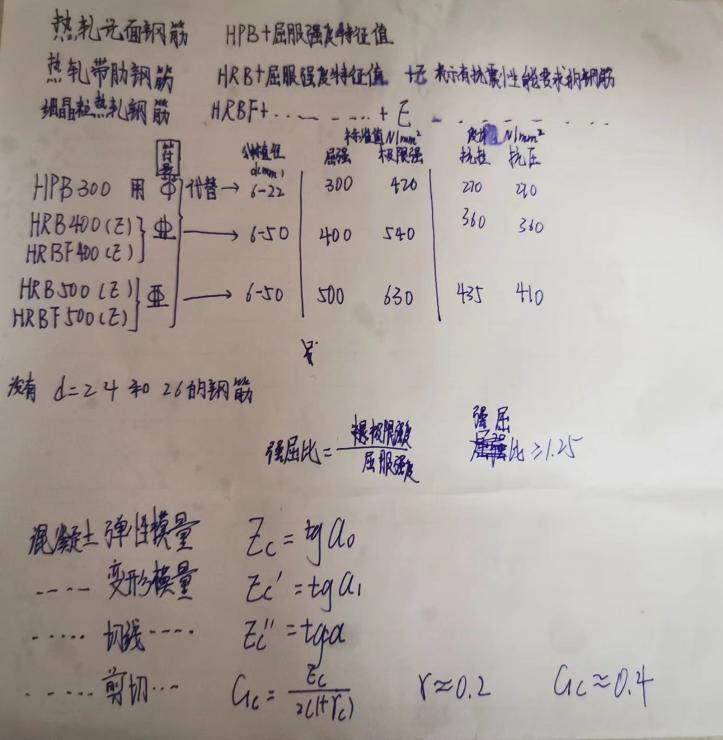 热轧光面钢筋 HPB+屈服强度特征值
热轧带肋钢筋 HRB+屈服强度特征值 +E 表示有抗震性能要求的钢筋
细晶粒热轧钢筋 HRBF+…… …… +E …… ……
符号 公称直径 d(mm) 标准值 N/mm² 屈强 极限强 N/mm² 抗拉 抗压
HPB300 用 Φ 代替→ 6-22 300 420 270 270
HRB400(E)
HRBF400(E) → 6-50 400 540 360 360
HRB500(E)
HRBF500(E) → 6-50 500 630 435 410
没有 d=24 和 26的钢筋
强屈比=极限强度/屈服强度 强屈比≥1.25
混凝土弹性模量 Ec=tgα₀
…… 变形模量 Ec'=tgα₁
…… 切线…… Ec''=tgα
…… 剪切… Gc=Ec/2(1+γc) γ≈0.2 Gc≈0.4